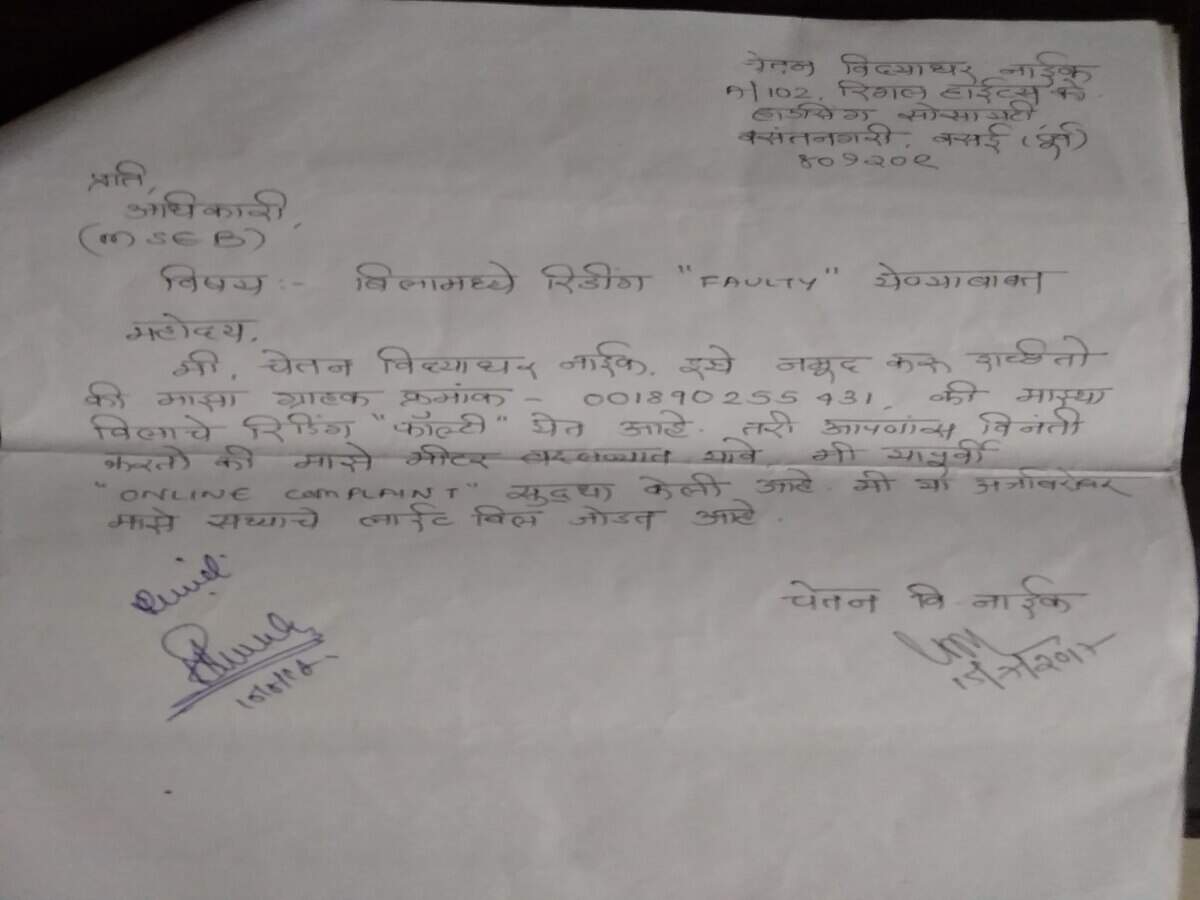 चेतन विद्याधर नाईक
A/102, रिगल हाईट्स को
हाउसिंग सोसायटी
वसंतनगरी, वसई (पूर्व)
४०१२०८
प्रति,
अधिकारी,
(MSEB)
विषय:- बिलामध्ये रिडींग "FAULTY" येण्याबाबत
महोदय,
मी, चेतन विद्याधर नाईक, इथे नमूद करू इच्छितो
की माझा ग्राहक क्रमांक - 001890255431, की माझ्या
बिलाचे रिडिंग "फॉल्टी" येत आहे. तरी आपणांस विनंती
करतो की माझे मीटर बदलण्यात यावे. मी यापूर्वी
"ONLINE COMPLAINT" सुद्धा केली आहे. मी या अर्जाबरोबर
माझे सध्याचे लाईट बिल जोडत आहे.
चेतन वि नाईक